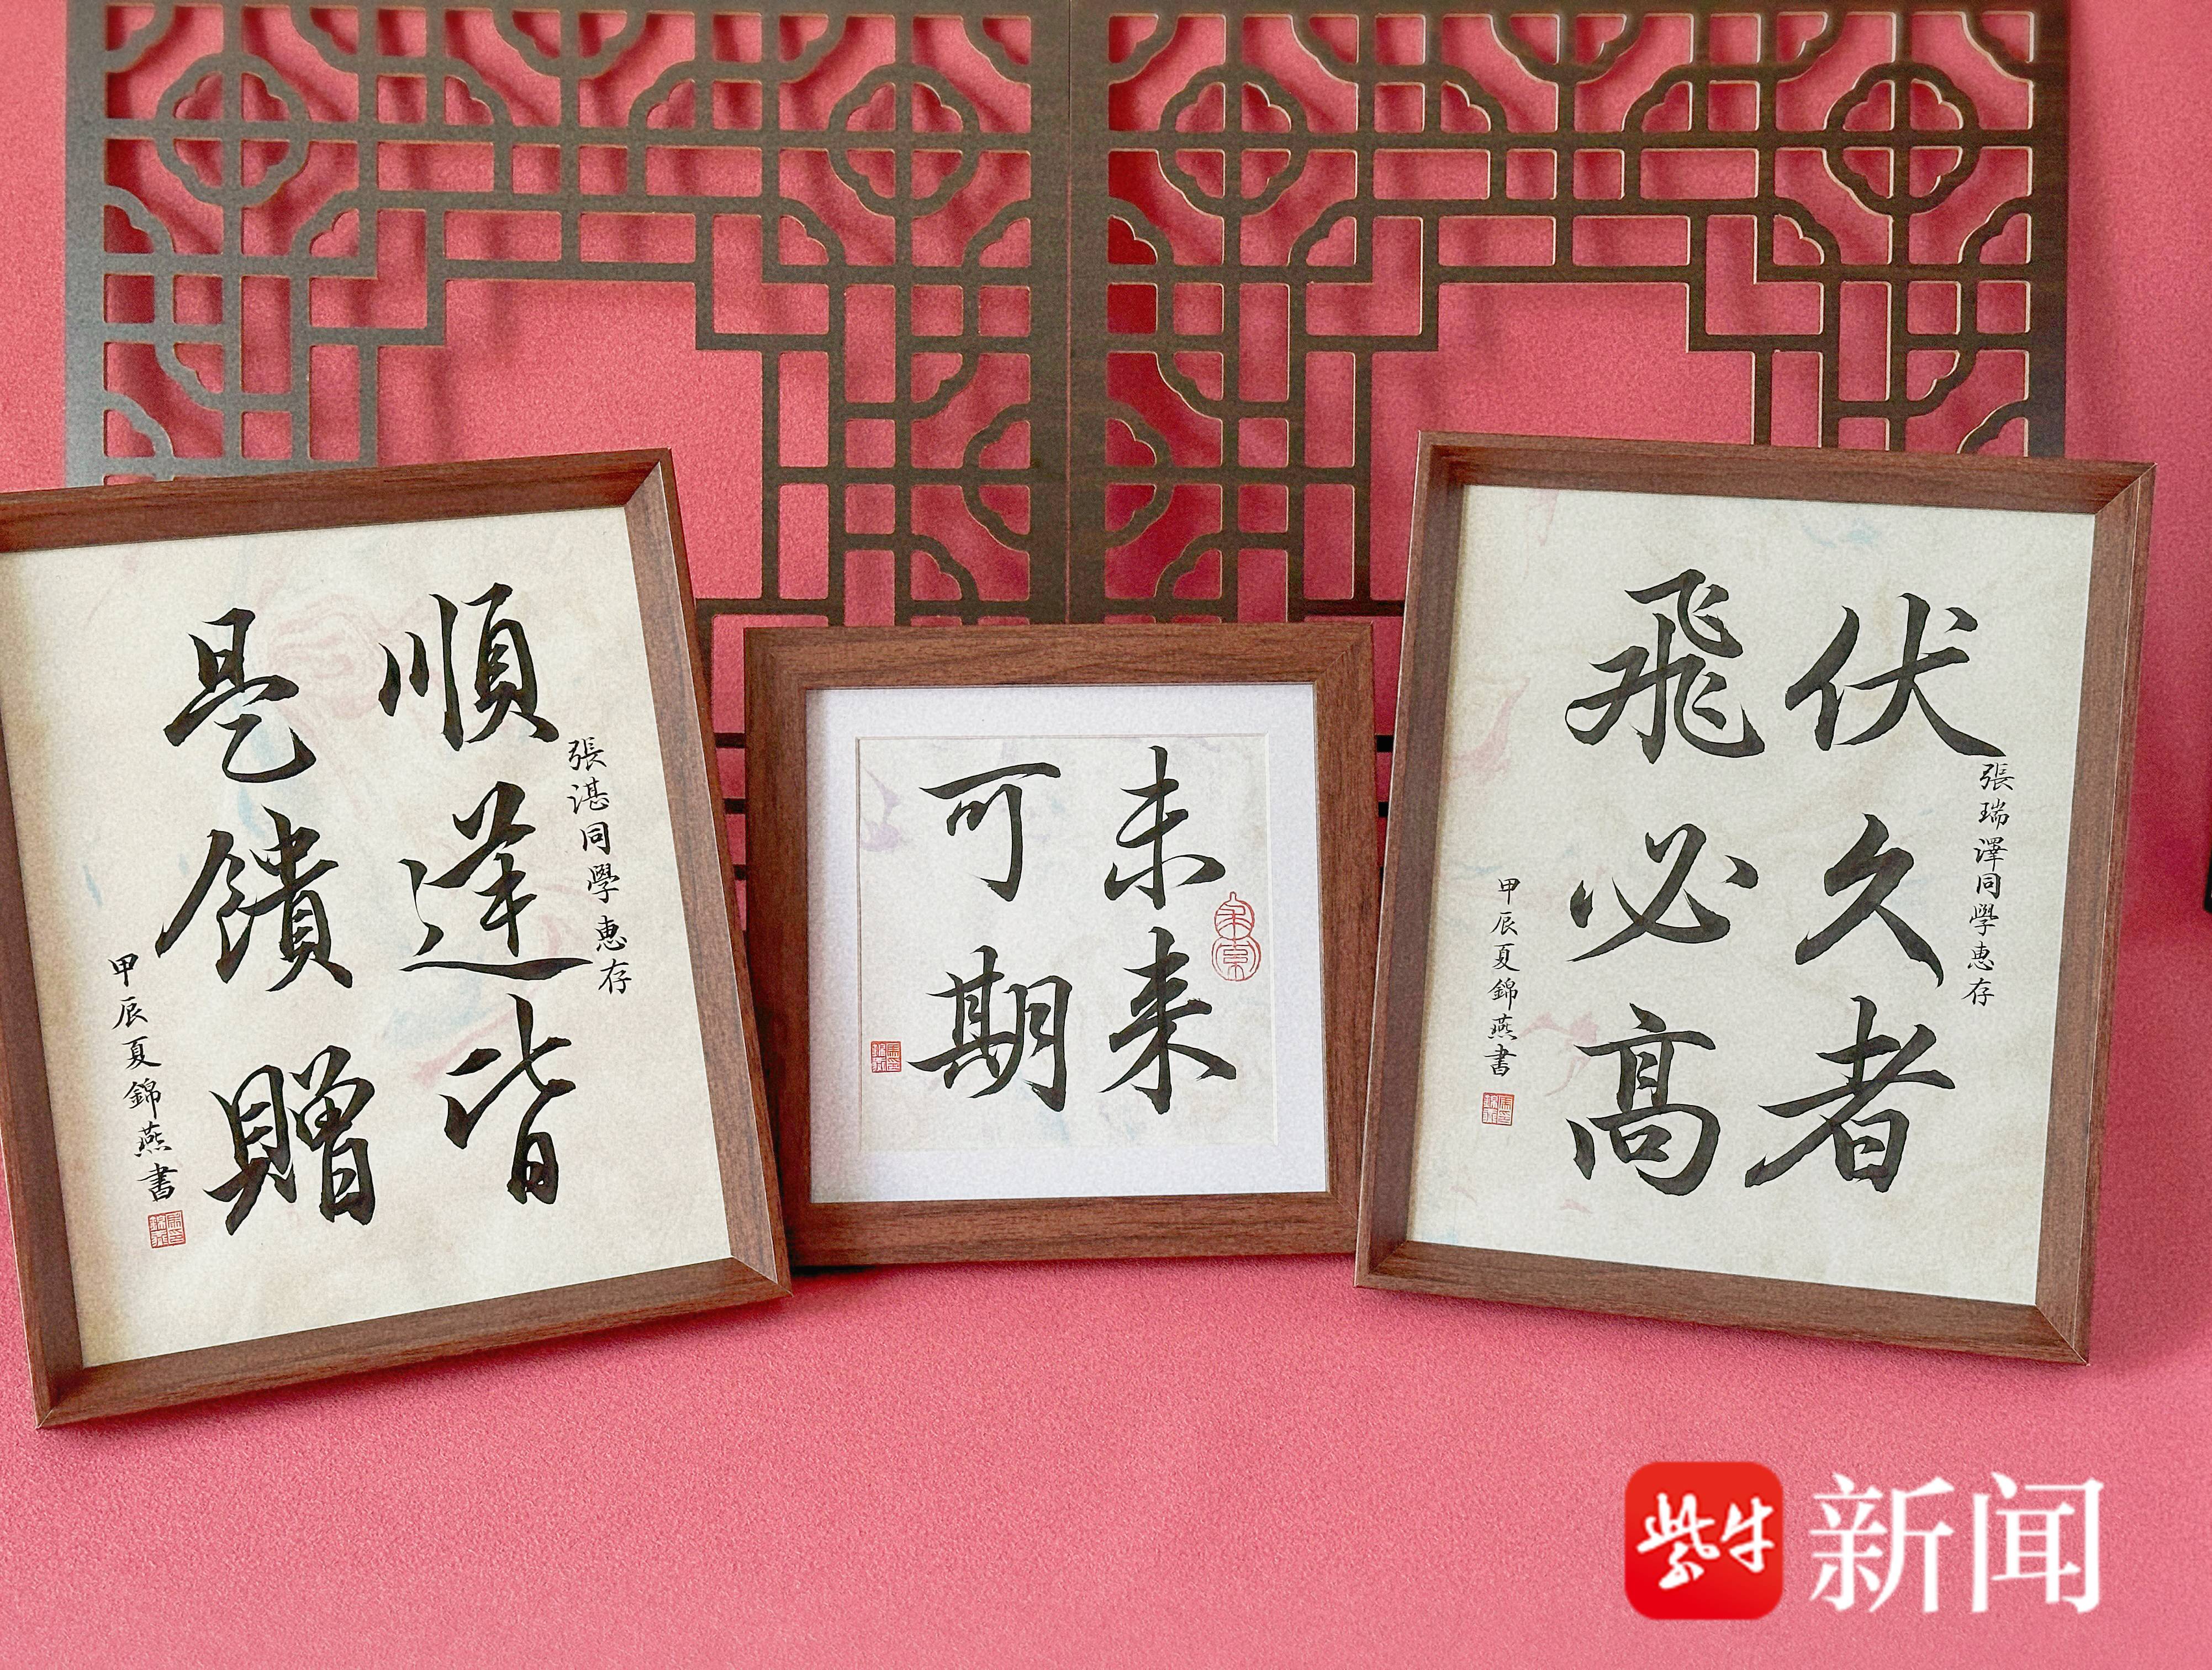 張湛同學惠存
順逆皆
是饋贈
甲辰夏錦燕書
未来
可期
張瑞澤同學惠存
伏久者
飛必高
甲辰夏錦燕書
紫牛 新闻